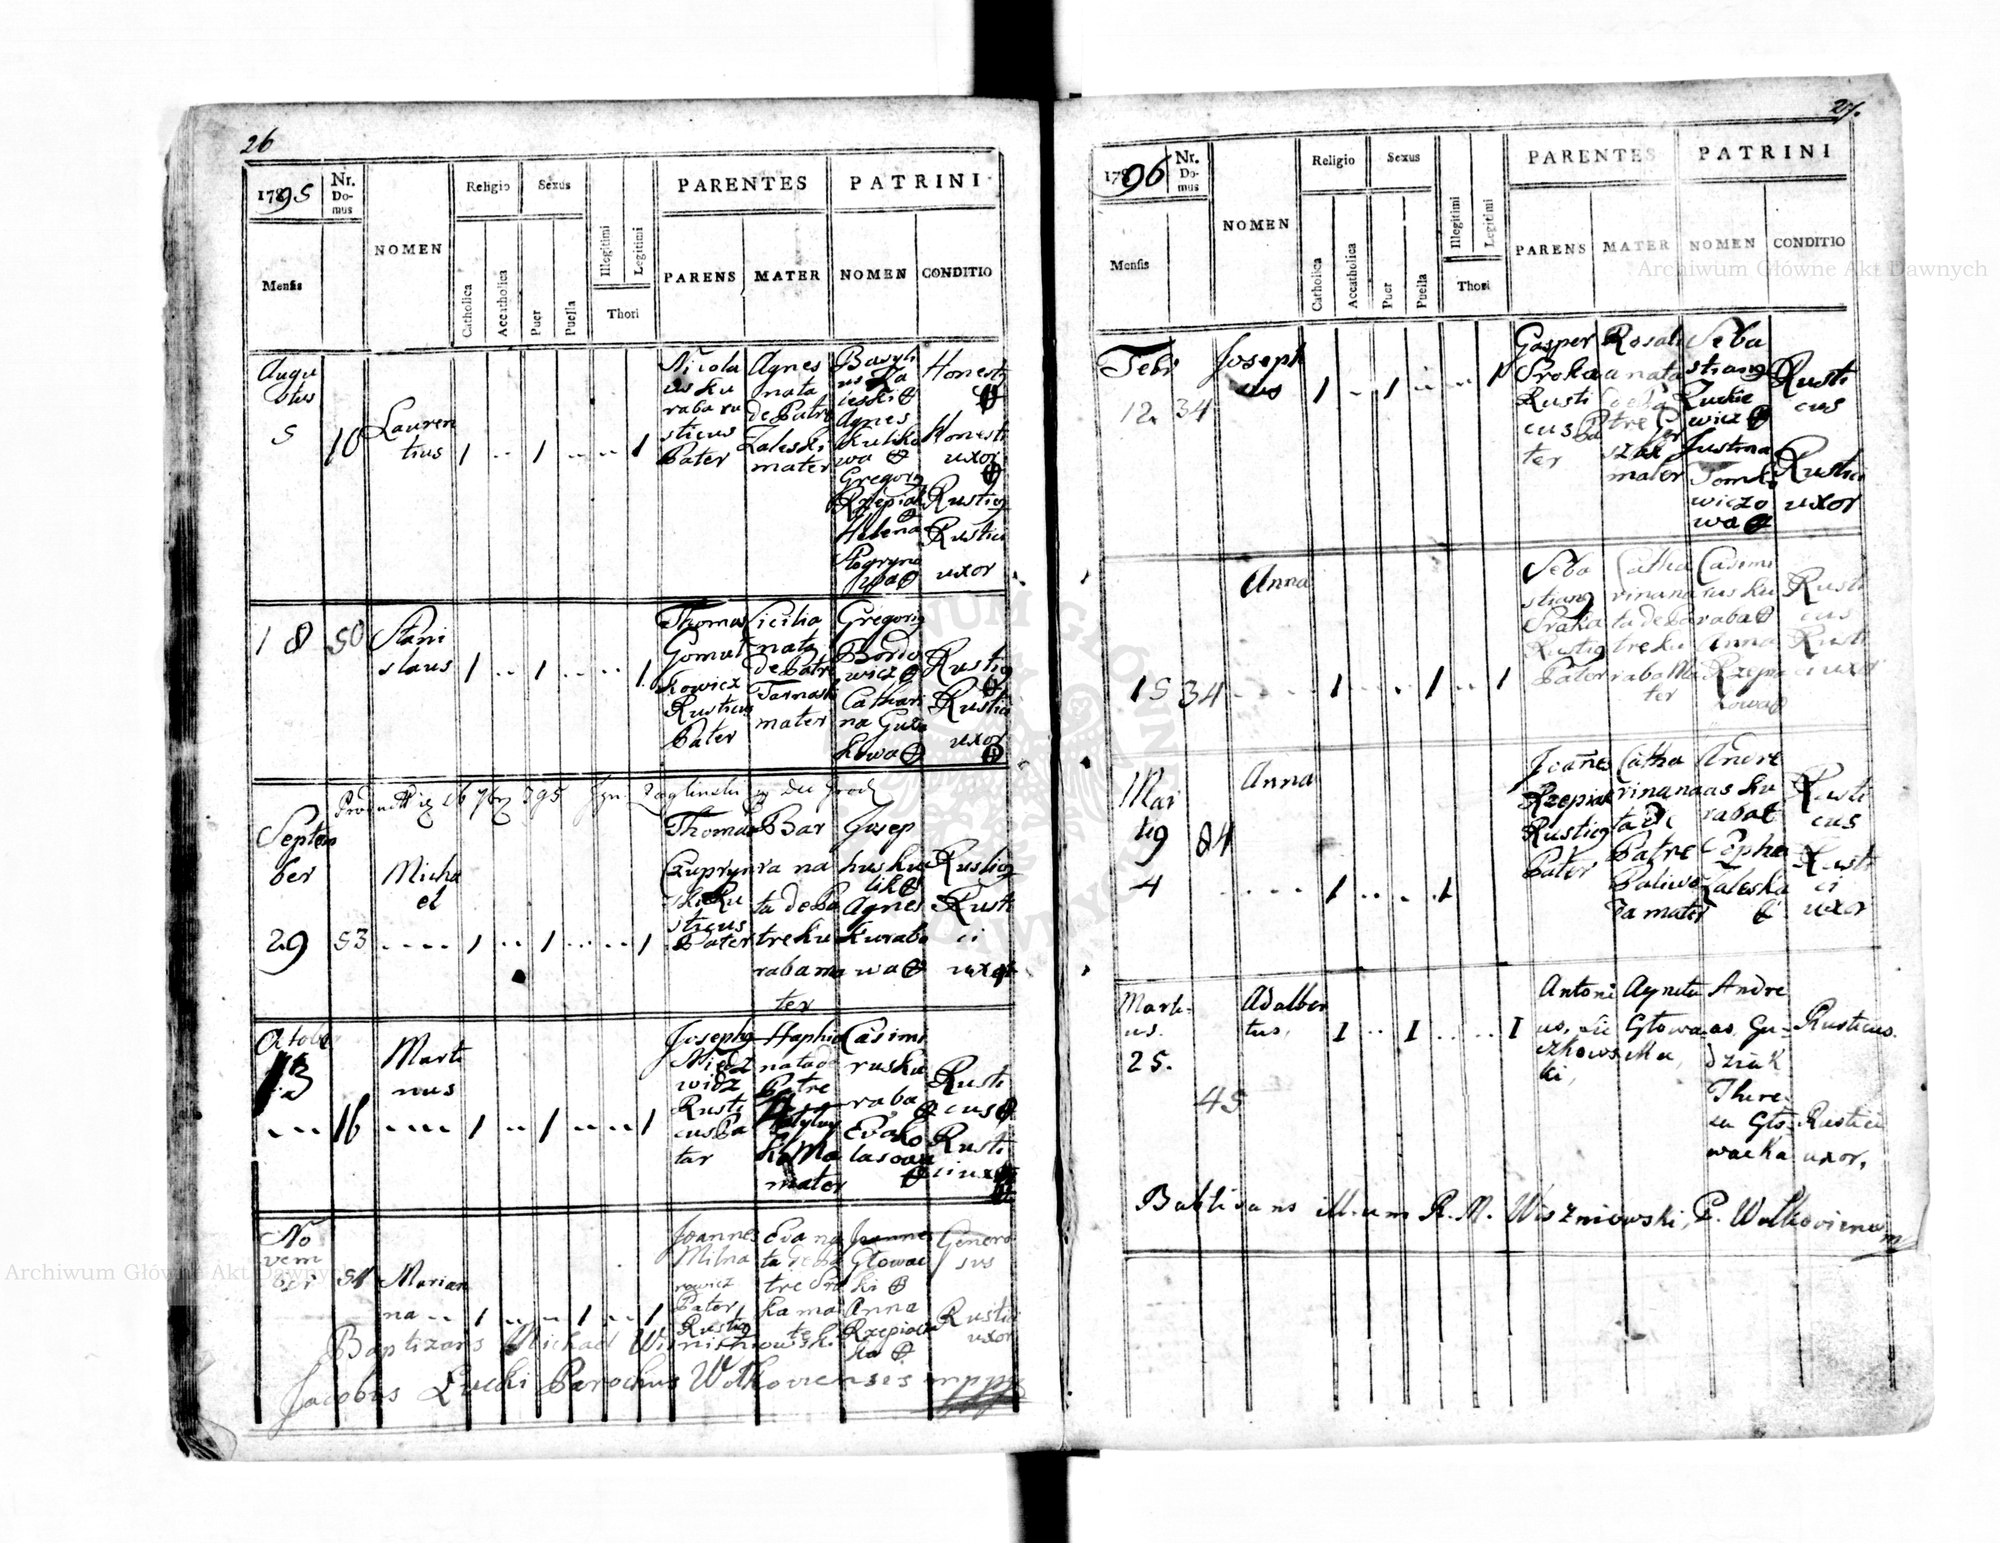 26
1795
Nr. Domus
NOMEN
Religio
Sexus
PARENTES
PATRINI
Mensis
Catholica
Accatholica
Puer
Puella
Illegitimi
Legitimi
Thori
PARENS
MATER
NOMEN
CONDITIO
Augu
stus
5
10
Lauren
tius
1 .. 1 .. .. 1
Nicola
us Ku
raba ru
sticus
Pater
Agnes
nata
de Patre
Zaleski
mater
Agnes
Kuliko
wa
Gregorig
Rzepiak
Helena
Honest
Honesti
uxor
Rusticg
Rustici
uxor
18
50
Stani
slaus
1 .. 1 .. .. 1
Thomas
Gomul
kowicz
Rusticus
Pater
Cicilia
nata
de Patre
Tarnaski
mater
Gregorig
Bordo
wicz
Cathari
na Guza
kowa
Rusticg
Rustici
uxor
Septem
ber
29
53
Micha
el
.... 1 .. 1 .. .. 1
Thomas
Cuprynr
ski Ru
sticus
Pater
Bar
ra na
ta de Pa
tre Ku
raba ma
ter
Josep
hus Ku
lik
Agnes
Kurabo
wa
Rusticg
Rusti
ci
uxor
Octobe
13
16
Marti
nus
.... 1 .. 1 .. .. 1
Josephg
Miedz
widz
Rusti
cus Pa
ter
nata de
Patre
mater
Casimi
rus Ku
raba
Eva Ko
lasowa
Rusti
cus
Rusti
ci uxor
No
vem
ber
51
Marian
na .. 1 .. .. 1 .. 1
Joannes
Milna
rowicz
Pater
Rusticg
Eva na
ta de Pa
tre Sro
ka ma
ter
Joannes
Glowac
ki
Anna
Rzepiako
wa
Genero
sus
Rustici
uxor
Baptizans Michael Wisniowski
Jacobus Lucki Parochus Wolkoviensis mppa
27.
1796
Nr. Domus
NOMEN
Religio
Sexus
PARENTES
PATRINI
Mensis
Catholica
Accatholica
Puer
Puella
Illegitimi
Legitimi
Thori
PARENS
MATER
NOMEN
CONDITIO
Febr
12.
34
Joseph
us
1 .. 1 .. .. 1
Gasper
Sroka
Rusti
cus Pa
ter
Rosali
a nata
de Pa
tre
mater
Seba
stiang
Luckie
wicz
Justina
Tomko
wiczo
wa
Rusti
cus
Rustici
uxor
15
34
Anna
.... 1 .. .. 1 .. 1
Seba
stiang
Sroka
Rusticg
Pater
Catha
rina na
ta de Pa
tre Ku
raba Ma
ter
Casimi
rus Ku
raba
Anna
Rzepia
kowa
Rusti
cus
Rusti
ci uxor
Mar
tig
4
84
Anna
.... 1 .. .. 1
Joanes
Rzepiak
Rusticg
Pater
Catha
rina na
ta de
Patre
Paliwo
da mater
Andre
as Ku
raba
Zopha
Zaleska
Rusti
cus
Rusti
ci
uxor
Marti-
us.
25.
45
Adalber
tus.
1 .. 1 .. .. 1
Antoni
us
czkows
ki,
Agneta
Glowa
cka,
Andre
as, Gu-
dziak
There-
sa Glo-
wacka
Rusticus.
Rustici
uxor,
Babtisans illum R. M. Wiszniowski, P. Wolkoviensem
Archiwum Główne Akt Dawnych
Archiwum Główne Akt Dawnych